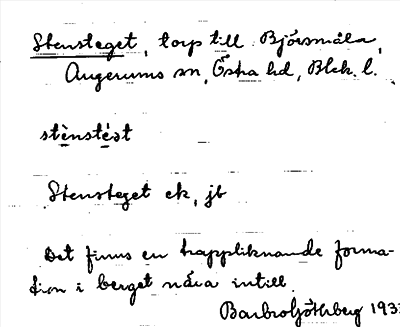 Stensteget, torp till Björsmåla,
Augerums sn, Östra hd, Blek. l.
stènsté̱ət
Stensteget ek, jb
Det finns en trappliknande forma-
tion i berget nära intill.
Barbro Göthberg 193